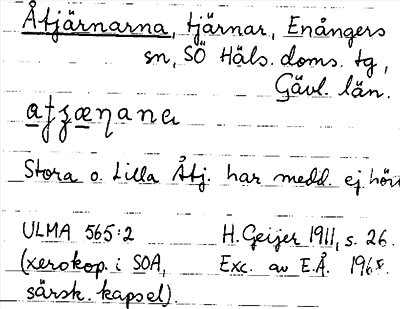 Åtjärnarna, tjärnar, Enångers
sn, SÖ Häls. doms. tg,
Gävl. län.
Stora o. Lilla Åtj. har medd. ej hört
ULMA 565:2 H. Geijer 1911, s. 26.
(xerokop. i SOA, Exc. av E.Å.
särsk. kapsel).